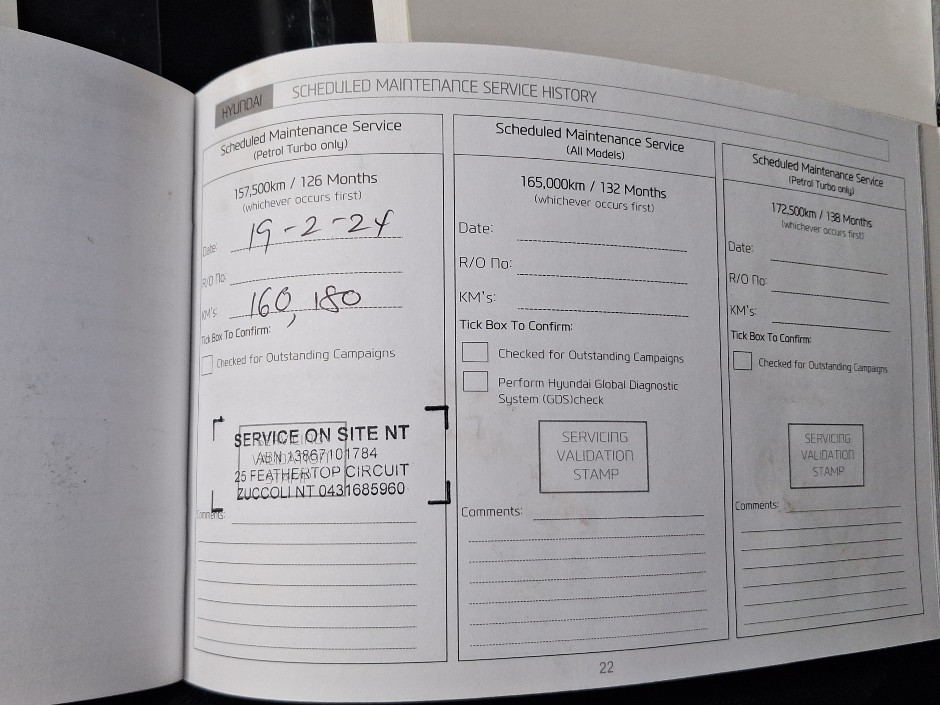 HYUNDAI
SCHEDULED MAINTENANCE SERVICE HISTORY
Scheduled Maintenance Service
(Petrol Turbo only)
157,500km / 126 Months
(whichever occurs first)
Date: 19-2-24
R/O No:
KM's: 160,180
Tick Box To Confirm:
Checked for Outstanding Campaigns
SERVICING
VALIDATION
STAMP
SERVICE ON SITE NT
ABN 13867101784
25 FEATHERTOP CIRCUIT
ZUCCOLI NT 0431685960
Comments:
Scheduled Maintenance Service
(All Models)
165,000km / 132 Months
(whichever occurs first)
Date:
R/O No:
KM's:
Tick Box To Confirm:
Checked for Outstanding Campaigns
Perform Hyundai Global Diagnostic
System (GDS)check
SERVICING
VALIDATION
STAMP
Comments:
Scheduled Maintenance Service
(Petrol Turbo only)
172,500km / 138 Months
(whichever occurs first)
Date:
R/O No:
KM's:
Tick Box To Confirm:
Checked for Outstanding Campaigns
SERVICING
VALIDATION
STAMP
Comments:
22